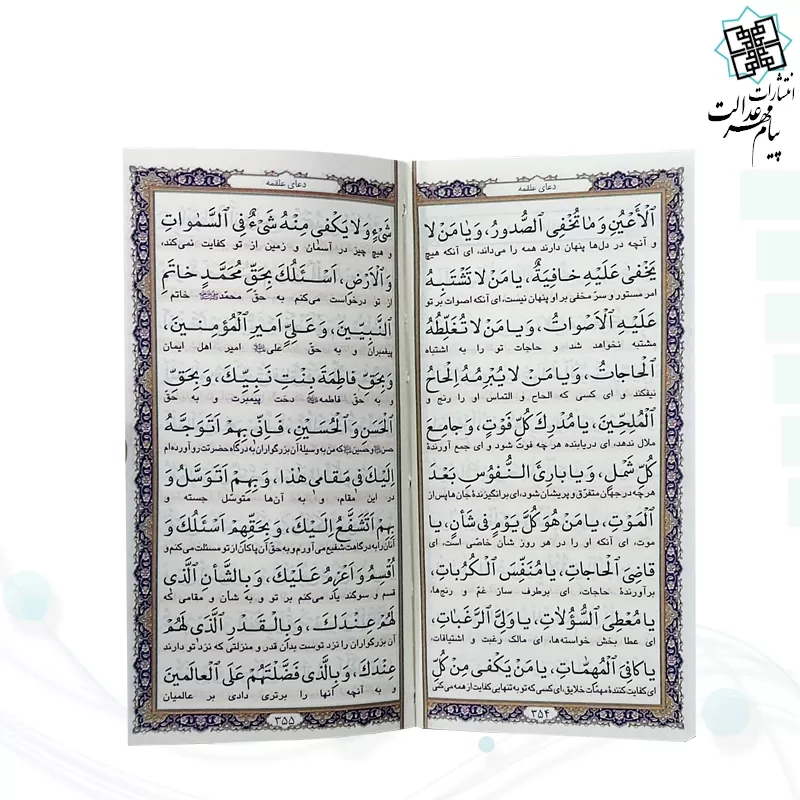 انتشارات
پیام مهر عدالت
دعای علقمه
الْأَعْيُنِ وَمَا تُخْفِى الصُّدُورُ، وَيَا مَنْ لَا
و آنچه در دل‌ها پنهان دارند همه را می‌داند، ای آنکه هیچ
يَخْفىٰ عَلَيْهِ خَافِيَةٌ، يَا مَنْ لَا تَشْتَبِهُ
امر مستور و سرّ مخفی بر او پنهان نیست، ای آنکه اصوات بر تو
عَلَيْهِ الْأَصْوَاتُ، وَيَا مَنْ لَا تُغَلِّطُهُ
مشتبه نخواهد شد و حاجات تو را به اشتباه
الْحَاجَاتُ، وَيَا مَنْ لَا يُبْرِمُهُ إِلْحَاحُ
نیفکند و ای کسی که الحاح و التماس او را رنج و
الْمُلِحِّينَ، يَا مُدْرِكَ كُلِّ فَوْتٍ، وَجَامِعَ
ملال ندهد، ای دریابنده هر چه فوت شود و ای جمع آورندهٔ
كُلِّ شَمْلٍ، وَيَا بَارِئَ النُّفُوسِ بَعْدَ
هر چه در جهان متفرّق و پریشان شود، ای برانگیزندهٔ جان‌ها پس از
الْمَوْتِ، يَا مَنْ هُوَ كُلَّ يَوْمٍ فِى شَأْنٍ، يَا
موت، ای آنکه او را در هر روز شأن خاصّی است، ای
قَاضِىَ الْحَاجَاتِ، يَا مُنَفِّسَ الْكُرُبَاتِ،
برآورندهٔ حاجات، ای برطرف ساز غم و رنج‌ها،
يَا مُعْطِىَ السُّؤُلَاتِ، يَا وَلِىَّ الرَّغَبَاتِ،
ای عطا بخش خواسته‌ها، ای مالک رغبت و اشتیاقات،
يَا كَافِىَ الْمُهِمَّاتِ، يَا مَنْ يَكْفِى مِنْ كُلِّ
ای کفایت کنندهٔ مهمّات خلایق، ای کسی که تو به تنهایی کفایت از همه می‌کنی
۳۵۴
دعای علقمه
شَىْءٍ وَلَا يَكْفِى مِنْهُ شَىْءٌ فِى السَّمٰوَاتِ
و هیچ چیز در آسمان و زمین از تو کفایت نمی‌کند،
وَالْأَرْضِ، أَسْئَلُكَ بِحَقِّ مُحَمَّدٍ خَاتَمِ
از تو درخواست می‌کنم به حق محمد خاتم
النَّبِيِّينَ، وَعَلِىٍّ أَمِيرِ الْمُؤْمِنِينَ،
پیغمبران و به حقّ علی امیر اهل ایمان
وَبِحَقِّ فَاطِمَةَ بِنْتِ نَبِيِّكَ، وَبِحَقِّ
و به حق فاطمه دخت پیمبرت و به حقّ
الْحَسَنِ وَالْحُسَيْنِ، فَإِنِّى بِهِمْ أَتَوَجَّهُ
حسن و حسین که من به وسیلهٔ آن بزرگواران به درگاه حضرتت رو آورده‌ام
إِلَيْكَ فِى مَقَامِى هٰذَا، وَبِهِمْ أَتَوَسَّلُ وَ
در این مقام، و به آن‌ها متوسّل جسته و
بِهِمْ أَتَشَفَّعُ إِلَيْكَ، وَبِحَقِّهِمْ أَسْئَلُكَ وَ
آنان را به درگاهت شفیع می‌آورم و به حق آن پاکان از تو مسئلت می‌کنم و
أُقْسِمُ وَأَعْزِمُ عَلَيْكَ، وَبِالشَّأْنِ الَّذِى
قسم و سوگند یاد می‌کنم بر تو و به شأن و مقامی که
لَهُمْ عِنْدَكَ، وَبِالْقَدْرِ الَّذِى لَهُمْ
آن بزرگواران را نزد توست بدان قدر و منزلتی که نزد تو دارند
عِنْدَكَ، وَبِالَّذِى فَضَّلْتَهُمْ عَلَى الْعَالَمِينَ
و به آنچه آنها را برتری دادی بر عالمیان
۳۵۵